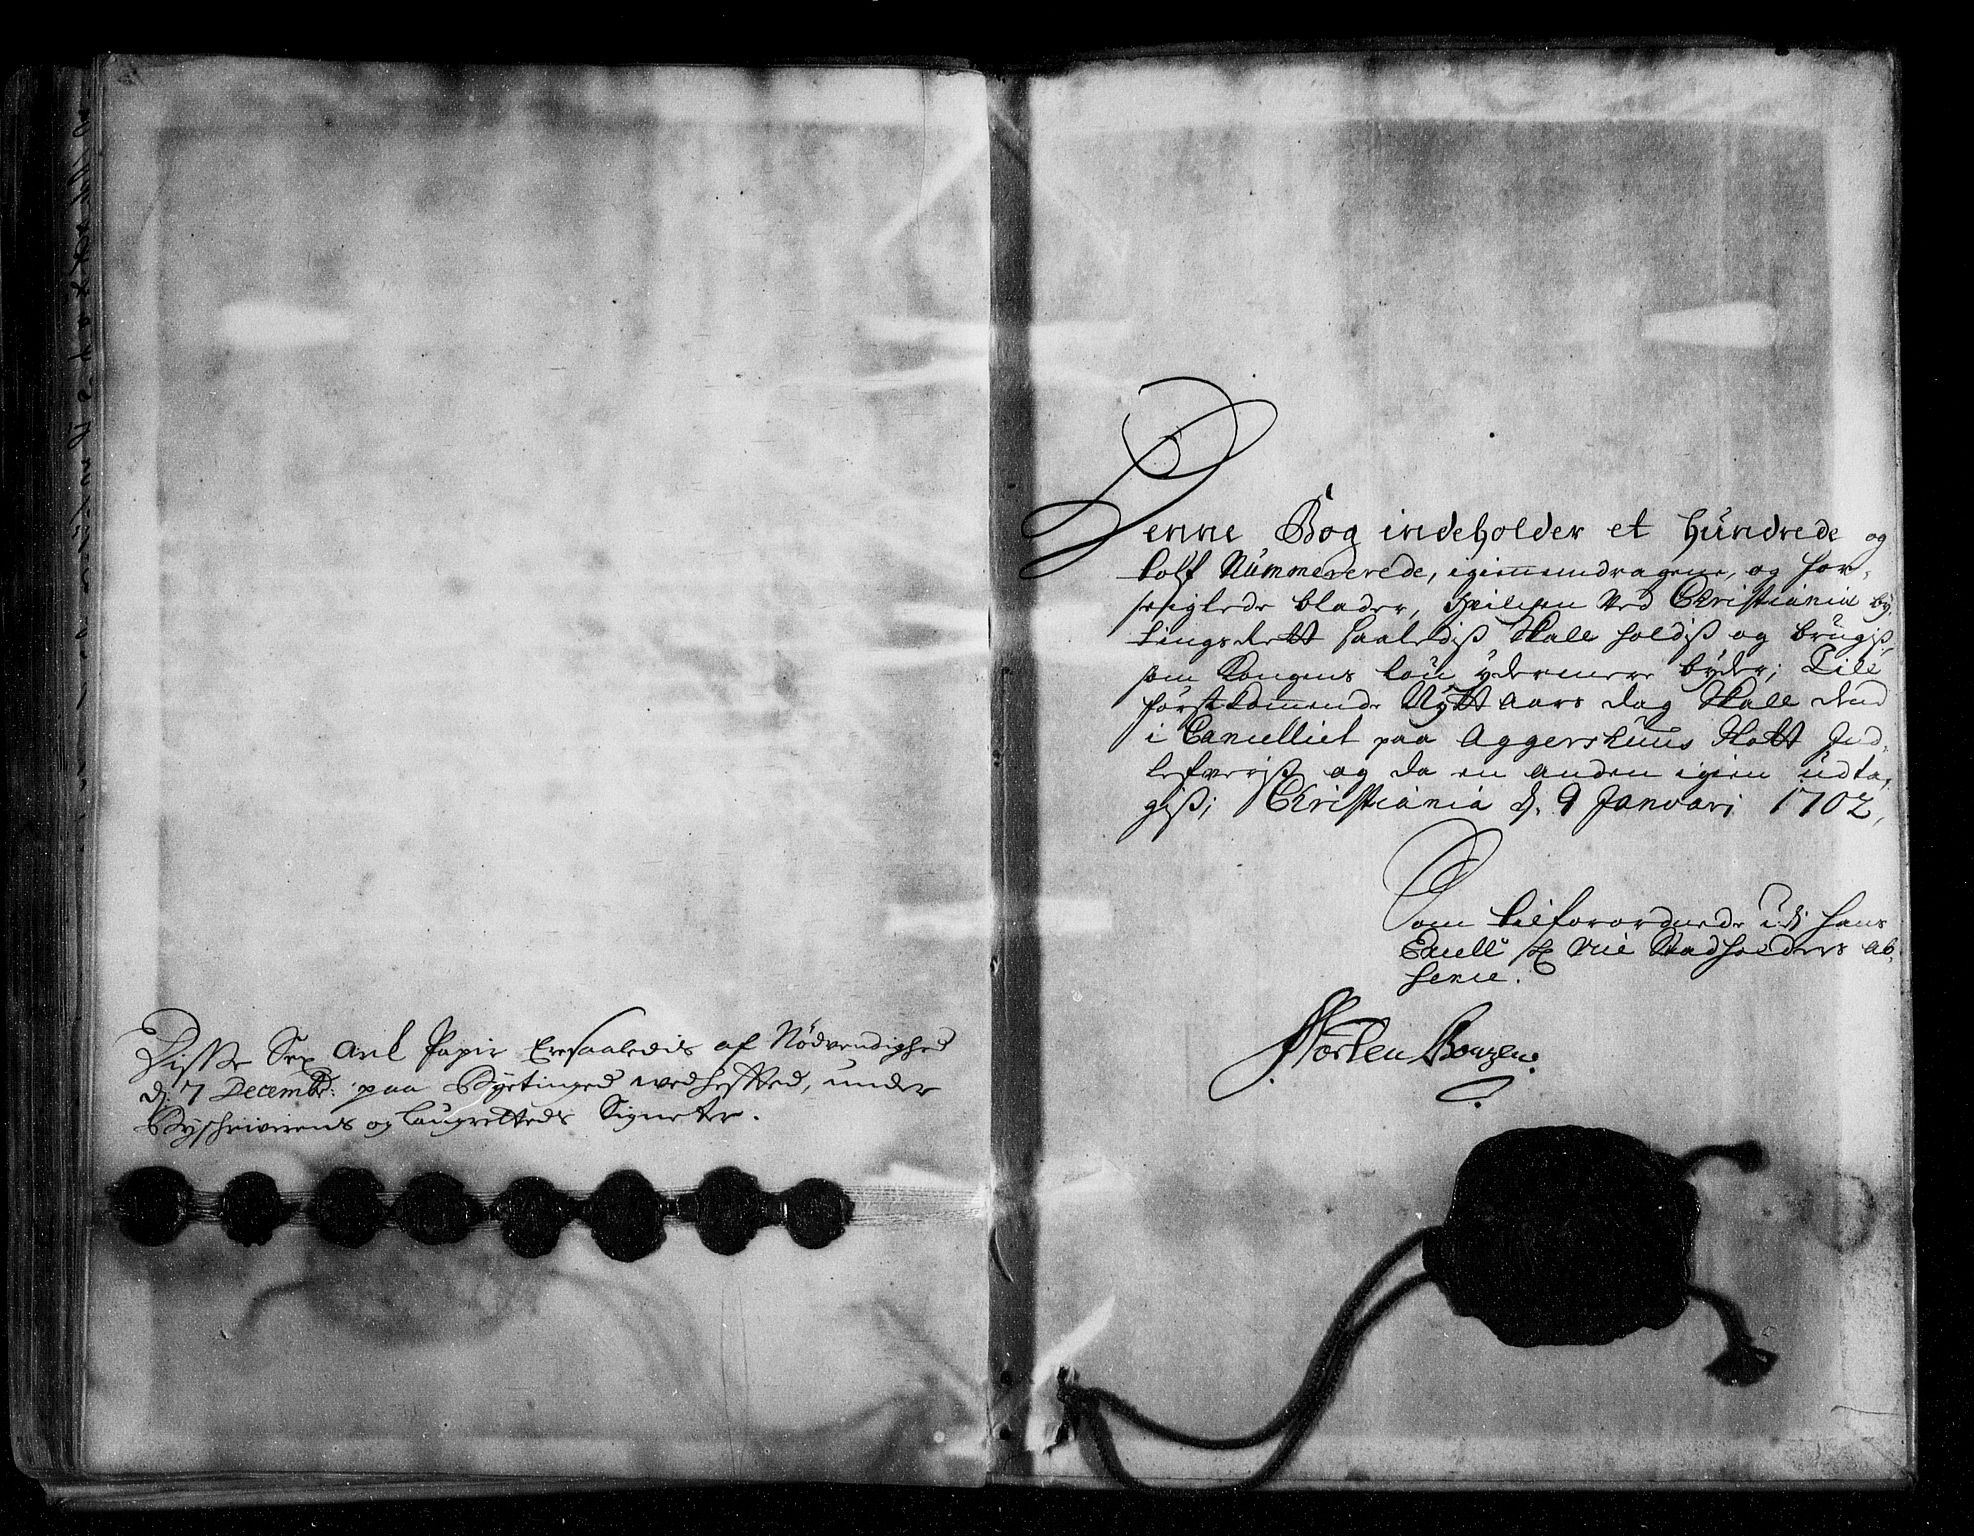 Disse Sex Ark Papir Ere saaledis af Nödvendighed
d. 7 Decembr: paa Byetinged wedhefted, under
Byschriverens og Laugretteds Signeter.
Denne Bog indeholder et Hundrede og
tolf Nummererede, igiemmendragene, og for-
seiglede blader, Hvilchen Ved Christiania by,
tings rett saaledis Skall holdis og brugis,
som Kongens lou ydermere byder; Till
förstkommende Nytt Aars dag Skall dend
i Cancelliet paa Aggershuus Slott Ind-
lefveris og da en anden igien udta-
gis; Christiania d. 9 Januari 1702,
Som tilforordnede udj Hans
Excell: Hr Vice Stadholders ab-
sence.
Morten